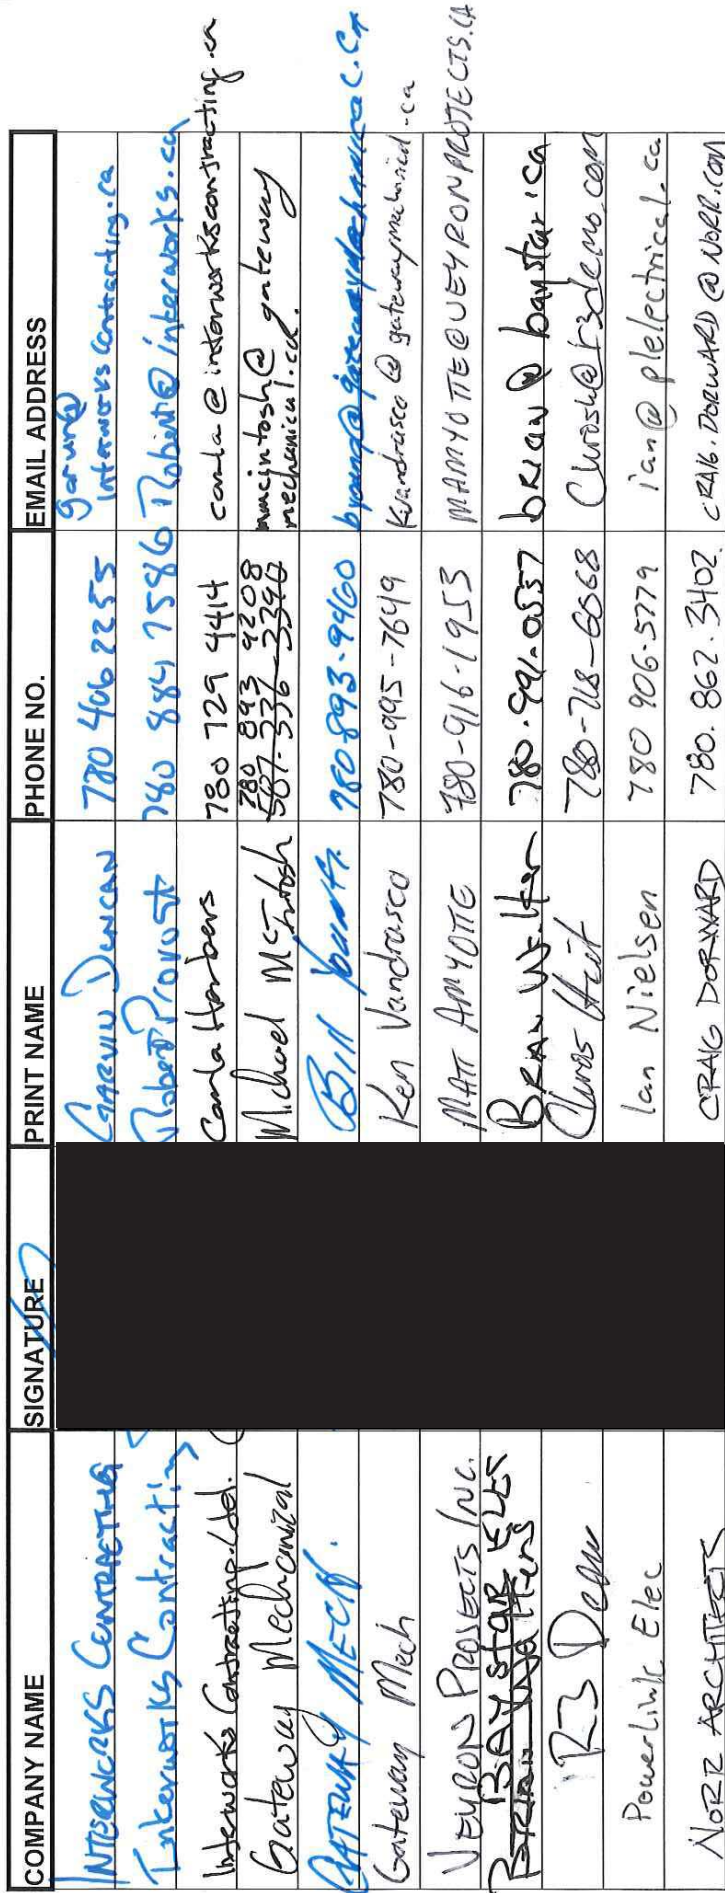 COMPANY NAME SIGNATURE PRINT NAME PHONE NO. EMAIL ADDRESS
INTERWORKS CONTRACTING GARVIN DUNCAN 780 406 2255 garvin@
interworkscontracting.ca
Interworks Contracting Robert Provost 780 884 7586 Robert@interworks.ca
Interworks Contracting Ltd. Carla Harbers 780 729 4414 carla@interworkscontracting.ca
Gateway Mechanical Michael McIntosh 780 893 9208 mmcintosh@gateway
mechanical.ca.
GATEWAY MECH. Bill 780-893-9460
Gateway Mech Ken Vandrasco 780-995-7649 Kvandrasco@gatewaymechanical.ca
VEYRON PROJECTS INC. MATT AMYOTTE 780-916-1953 MAMYOTTE@VEYRONPROJECTS.CA
BAYSTAR BRIAN Walter 780.991.0557 brian@baystar.ca
R3 Demo Chris 780-718-6668 @r3demo.com
PowerLink Elec Ian Nielsen 780 906-5779 ian@plelectrical.ca
NORR ARCHITECTS CRAIG DORWARD 780.862.3402 CRAIG.DORWARD@NORR.COM